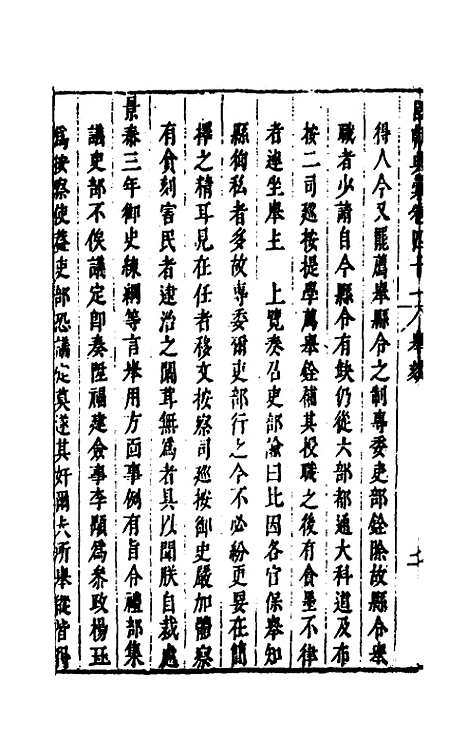 國朝典彙卷四十一 舉錯 十
得人今又罷薦舉縣令之制專委吏部銓除故縣令舉
職者少請自今縣令有缺仍從六部都通大科道及布
按二司巡按提學薦舉銓補其授職之後有貪墨不律
者連坐舉主 上覽奏召吏部諭曰比因各官保舉知
縣徇私者多故專委爾吏部行之今不必紛更要在簡
擇之精耳見在任者移文按察司巡按御史嚴加體察
有貪刻害民者逮治之闒茸無為者具以聞朕自裁處
景泰三年御史練綱等言舉用方面事例有旨令禮部集
議吏部不俟議定即奏陞福建僉事李顒為參政楊玨
為按察使蓋吏部恐議定莫遂其奸爾夫所舉縱皆得